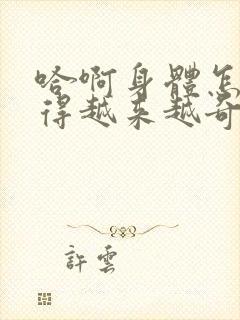 哈啊身體怎
得越来越奇
許雲